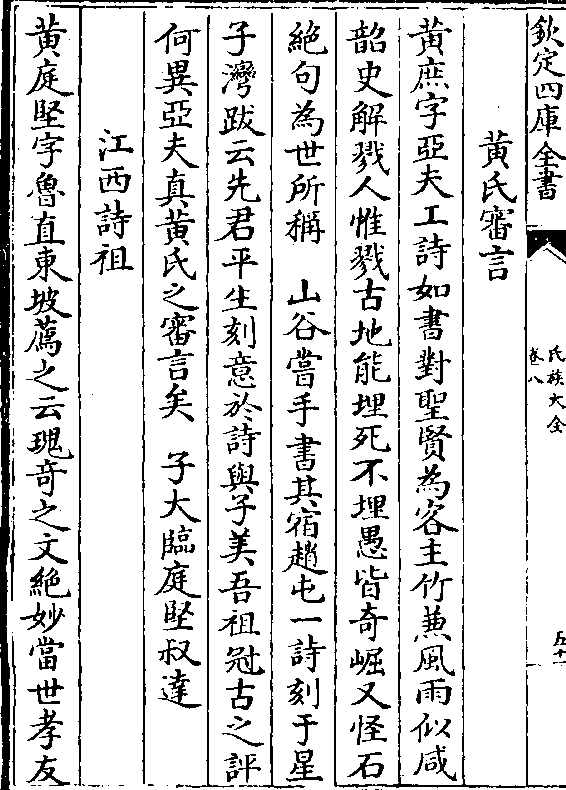 欽定四庫全書
氏族大全
卷八
五十一
黄氏審言
黄庶字亞夫工詩如書對聖賢為客主竹兼風雨似咸
韶史解戮人惟戮古地能埋死不埋愚皆奇崛又怪石
絶句為世所稱　山谷嘗手書其宿趙屯一詩刻于星
子灣跋云先君平生刻意於詩與子美吾祖冠古之評
何異亞夫真黄氏之審言矣　子大臨庭堅叔達
江西詩祖
黄庭堅字魯直東坡薦之云瑰竒之文絶妙當世孝友